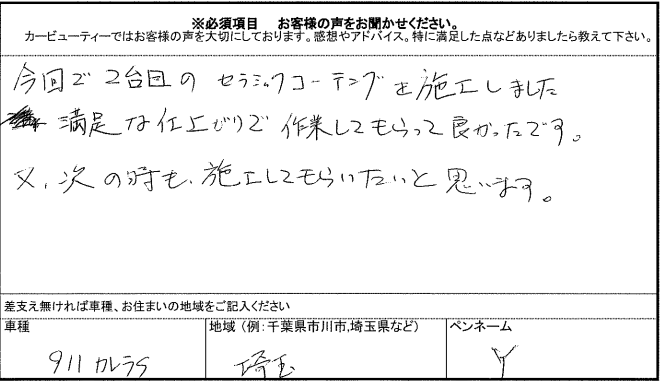 ※必須項目　お客様の声をお聞かせください。
カービューティーではお客様の声を大切にしております。感想やアドバイス。特に満足した点などありましたら教えて下さい。
今回で2台目の セラミックコーティングを施工しました
満足な仕上がりで 作業してもらって良かったです。
又、次の時も、施工してもらいたいと思います。
差支え無ければ車種、お住まいの地域をご記入ください
車種 地域（例:千葉県市川市,埼玉県など） ペンネーム
911 カレラS 埼玉 Y